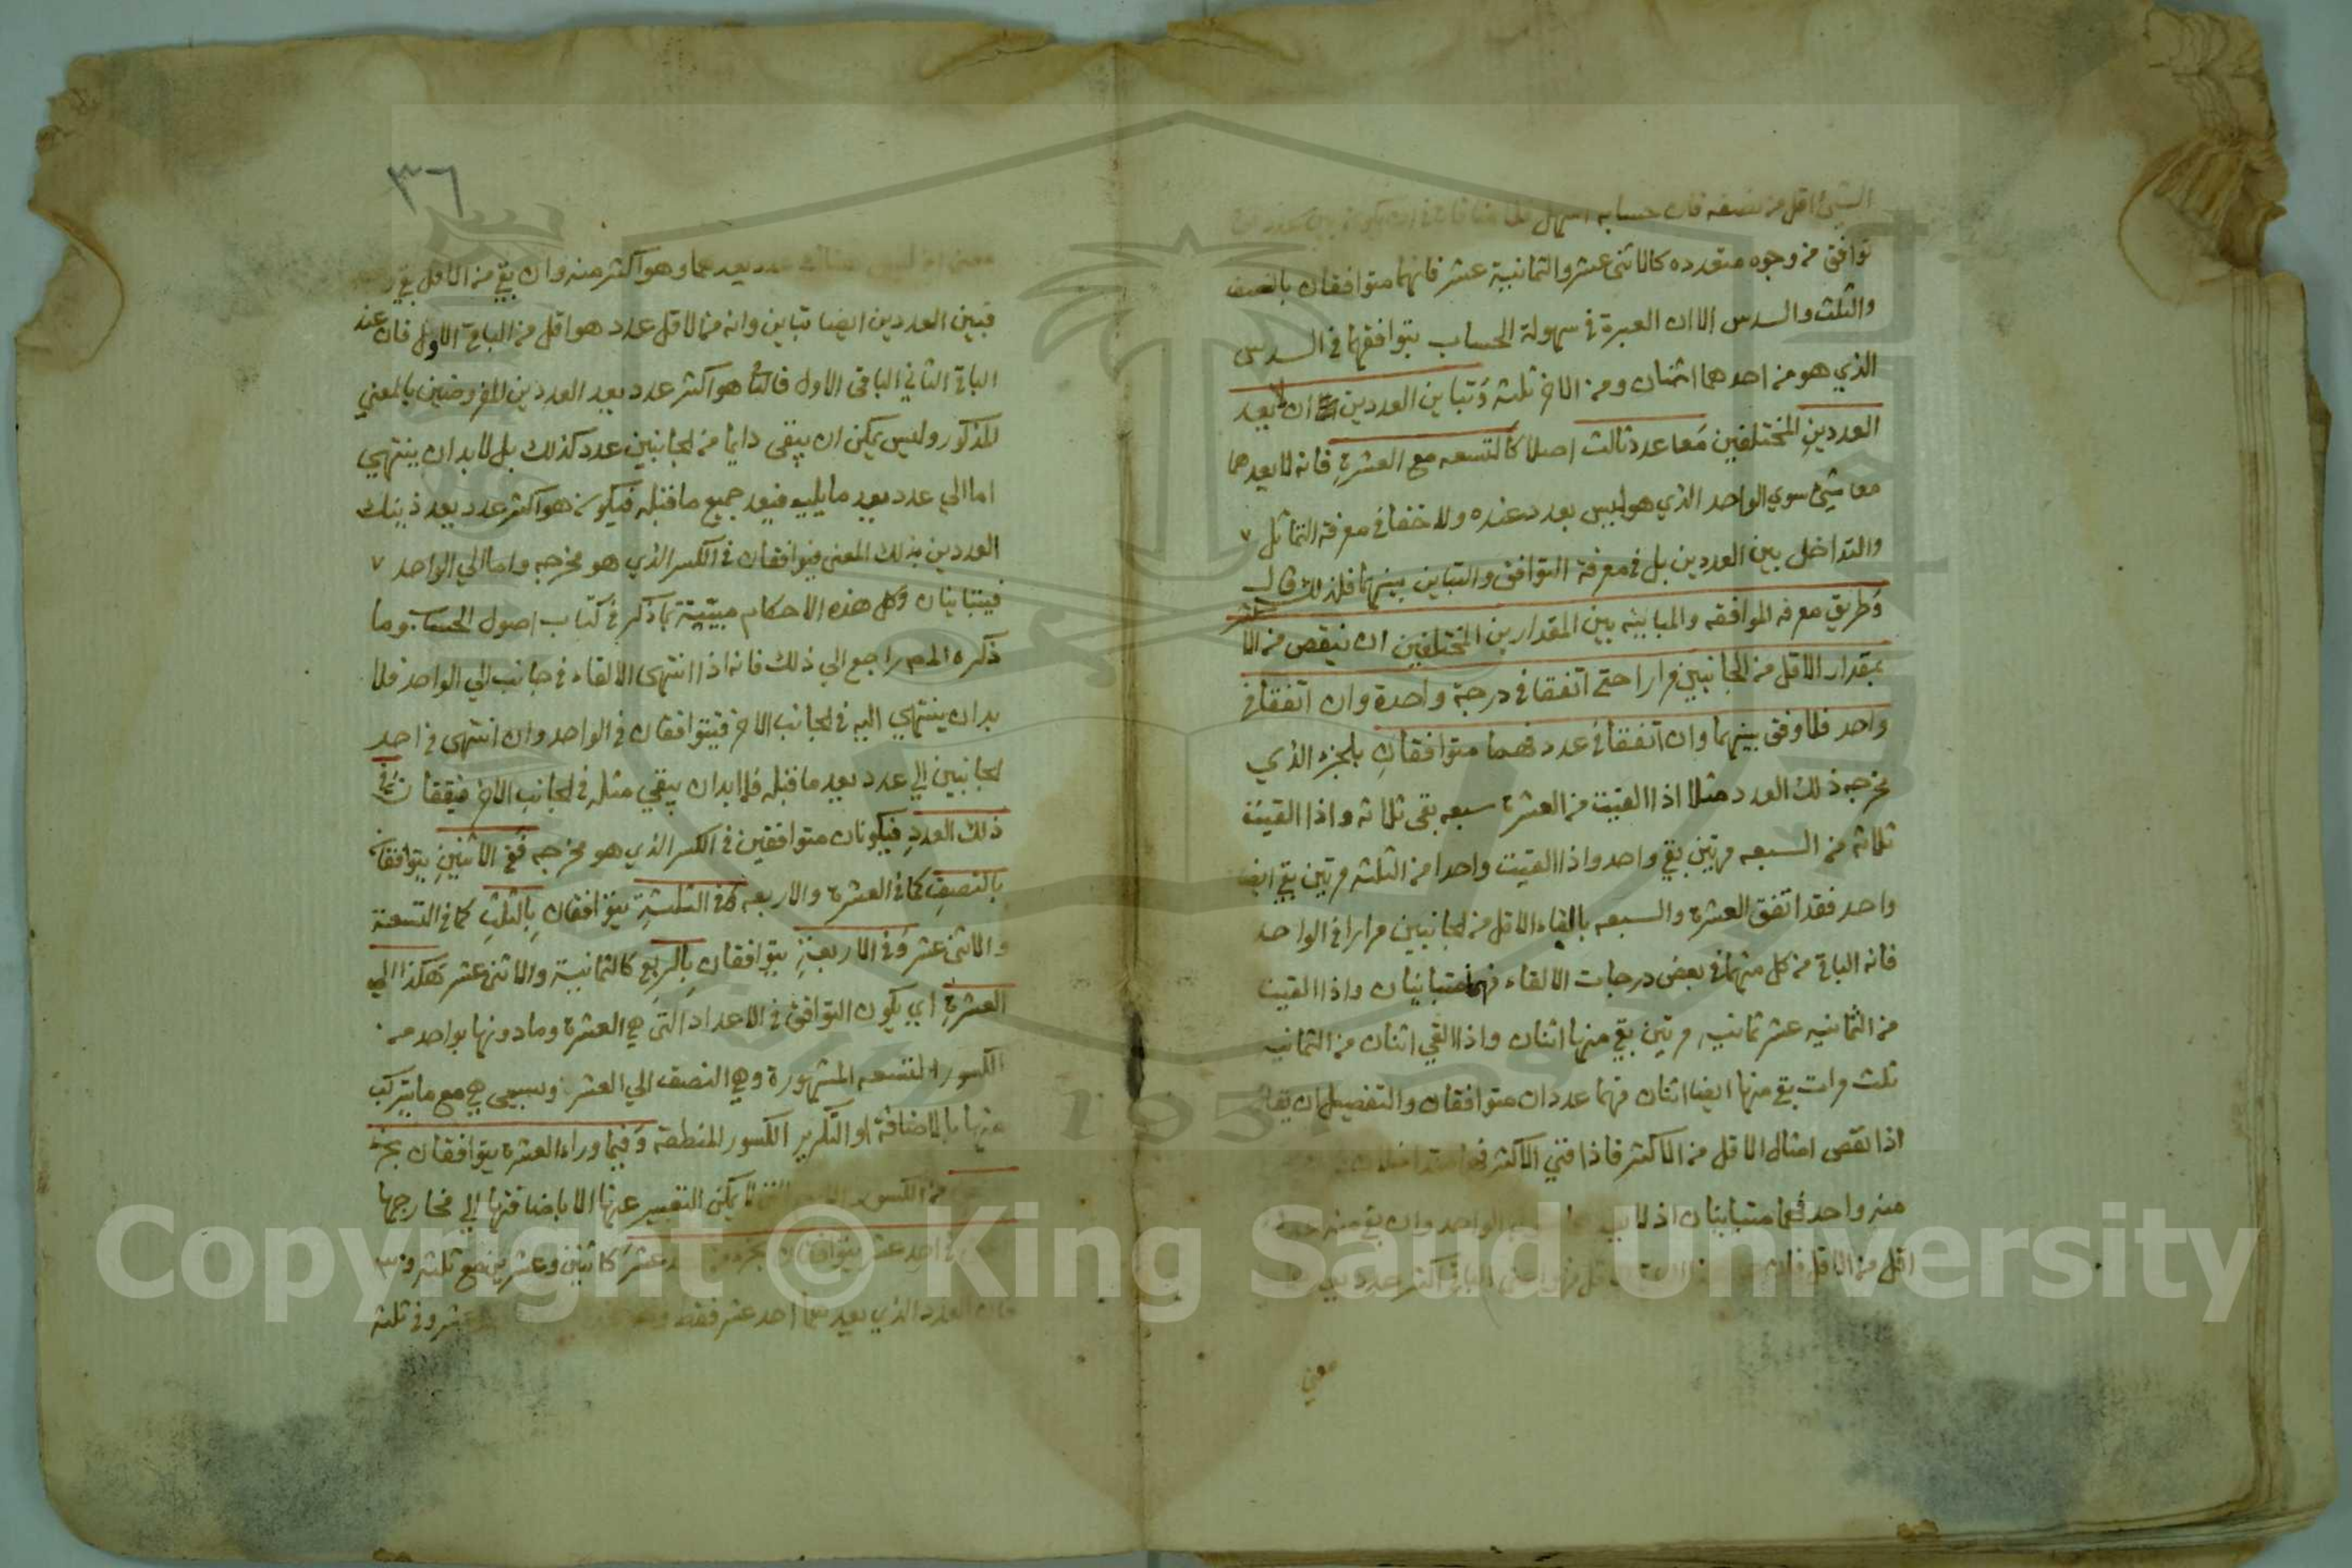 الشيئ اقل من نصفه فان حسابه اسهل
توافق من وجوه متعدده كالاثنى عشر والثمانية عشر فانهما متوافقان بالنصف
والثلث والسدس الا ان العبرة في سهولة الحساب بتوافقهما في السدس
الذي هو من احدهما اثنان ومن الاخر ثلثة وتباين العددين ان لا يعد
العددين المختلفين معا عدد ثالث اصلا كالتسعه مع العشرة فانه لا يعدهما
معا شئ سوي الواحد الذي هو ليس بعدد عنده ولا خفا في معرفة التماثل ٧
والتداخل بين العددين بل في معرفة التوافق والتباين بينهما فلذلك قال
وطريق معرفه الموافقه والمباينه بين المقدارين المختلفين ان ينقص من الاكثر
بمقدار الاقل من الجانبين مرارا حتى اتفقا في درجة واحدة وان اتفقا في
واحد فلا وفق بينهما وان اتفقا في عدد فهما متوافقان بالجزء الذي
مخرجه ذلك العدد مثلا اذا القيت من العشرة سبعه بقى ثلاثه واذا القيت
ثلاثه من السبعه مرتين بقي واحد واذا القيت واحدا من الثلثه مرتين بقي ايضا
واحد فقد اتفق العشرة والسبعه بالقاء الاقل من الجانبين مرارا في الواحد
فانه الباقي من كل منهما في بعض درجات الالقاء فهما متباينان واذا القيت
من الثمانيه عشر ثمانيه مرتين بقي منها اثنان واذا القي اثنان من الثمانيه
ثلث مرات بقي منها ايضا اثنان فهما عددان متوافقان والتفصيل ان يقال
اذا نقص امثال الاقل من الاكثر فاذا فني الاكثر فهما متداخلان
منه واحد فهما متباينان اذ لا الواحد وان بقي منه عدد
اقل من الاقل فان الباقي اكثر عدد
معني
٣٦
معني اذ ليس هناك عدد يعدهما وهو اكثر منه وان بقي من الاقل بقي
فبين العددين ايضا تباين وانه من الاقل عدد هو اقل من الباقي الاول فان عند
الباقي الثاني الباقي الاول فالثا هو اكثر عدد يعد العددين المفروضين بالمعني
المذكور وليس يمكن ان يبقى دايما من الجانبين عدد كذلك بل لا بد ان ينتهي
اما الي عدد يعد ما يليه فيعد جميع ما قبله فيكون هو اكثر عدد يعد ذينك
العددين بذلك المعنى فيتوافقان في الكسر الذي هو مخرجه واما الي الواحد ٧
فيتباينان وكل هذه الاحكام مبينة بما ذكر في كتاب اصول الحساب وما
ذكره المص راجع الي ذلك فانه اذا انتهى الالقاء في جانب الي الواحد فلا
بد ان ينتهي اليه في الجانب الاخر فيتوافقان في الواحد وان انتهى في احد
الجانبين الي عدد يعد ما قبله فلا بد ان يبقي مثله في الجانب الاخر فيتفقان في
ذلك العدد فيكونان متوافقين في الكسر الذي هو مخرجه ففي الاثنين يتوافقان
بالنصف كما في العشرة والاربعه وفي الثلثة يتوافقان بالثلث كما في التسعة
والاثنى عشر وفي الاربعة يتوافقان بالربع كالثمانية والاثنى عشر هكذا الي
العشرة اي يكون التوافق في الاعداد التي هي العشرة وما دونها بواحد من
الكسور التسعه المشهورة وهي النصف الي العشر وسيجى هي مع ما يتركب
منها بالاضافة او التكرير الكسور المنطقة وفيما وراء العشرة يتوافقان بجزء
من الكسور لا يمكن التعبير عنها الا باضافتها الي مخارجها
في احد عشر يتوافقان بجزء عشر كاثنين وعشرين مع ثلثه و
فان العدد الذي يعدهما احد عشر فقط عشر وفي ثلثه